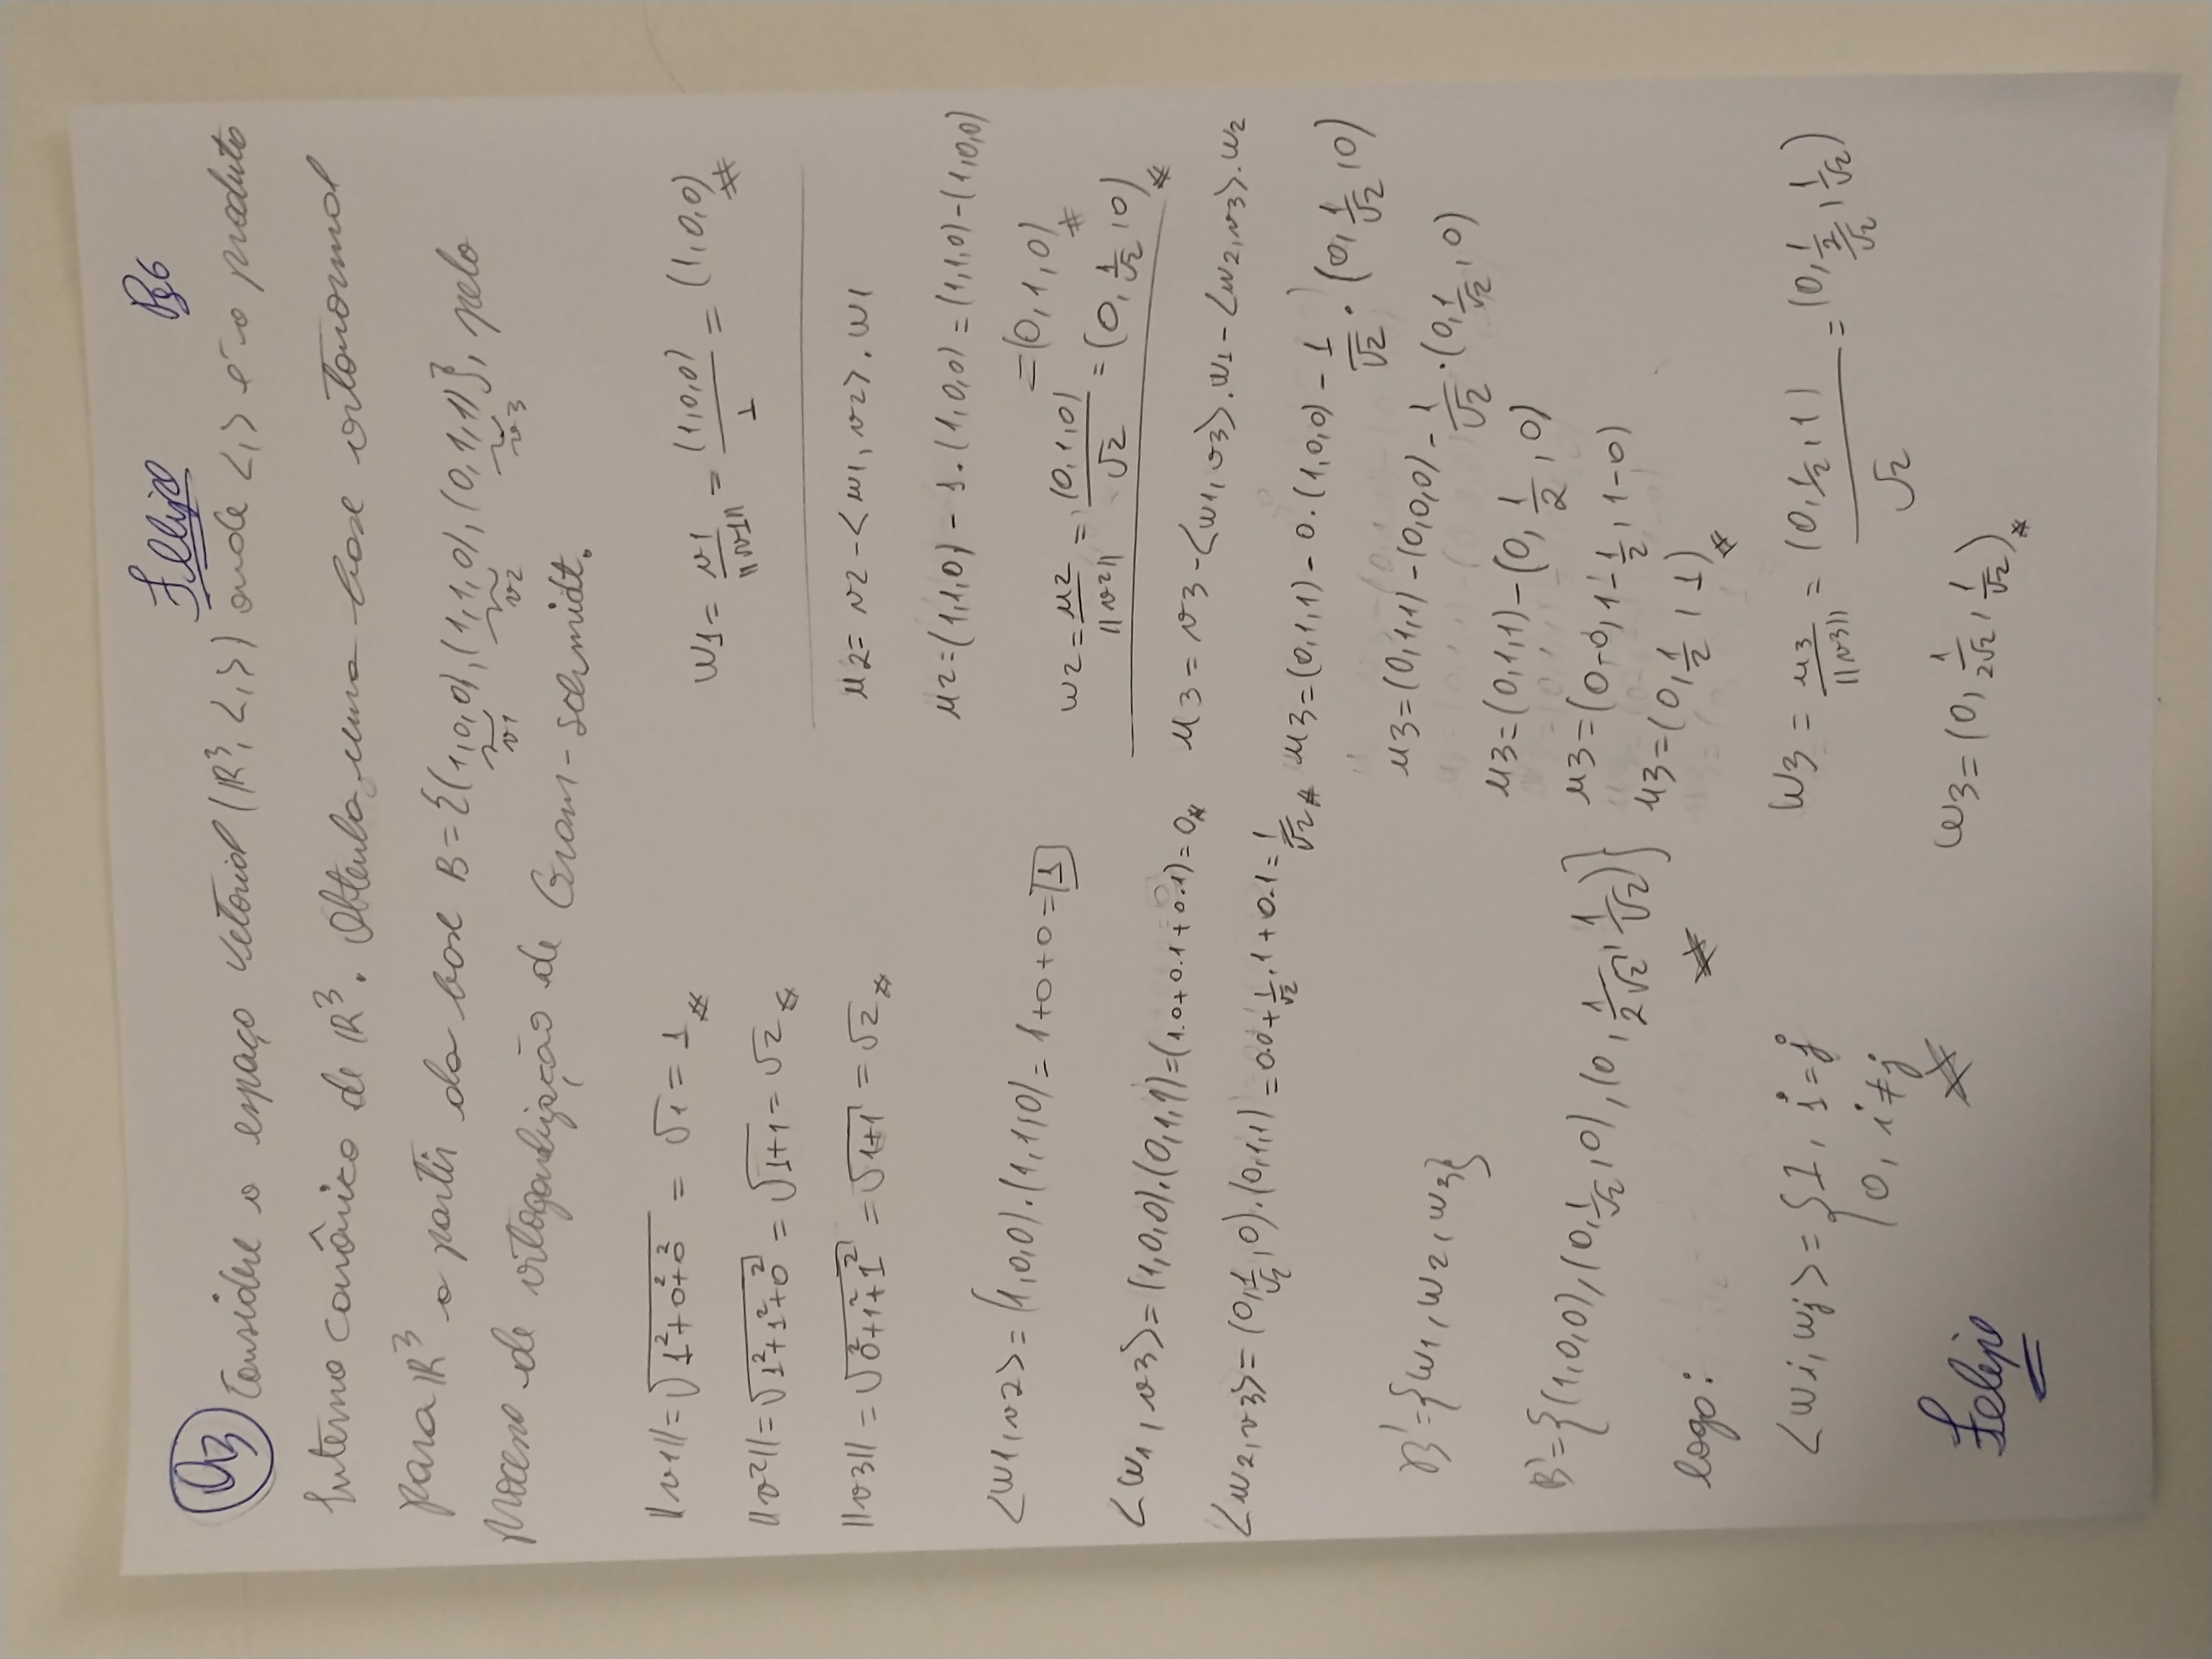 Felipe Pg6
Q3 Considere o espaço vetorial (ℝ³, <,>) onde <,> é o produto
Interno canônico de ℝ³. Obtenha uma base ortonormal
para ℝ³ a partir da base B={(1,0,0),(1,1,0),(0,1,1)}, pelo
v1 v2 v3
processo de ortogonalização de Gram-Schmidt.
||v1||=√(1²+0²+0²) = √1 = 1 #
||v2||=√(1²+1²+0²) = √(1+1) = √2 #
||v3||=√(0²+1²+1²) = √(1+1) = √2 #
<w1,v2>=(1,0,0).(1,1,0)=1+0+0=1
<w1,v3>=(1,0,0).(0,1,1)=(1.0+0.1+0.1)=0 #
<w2,v3>=(0,1/√2,0).(0,1,1)=0.0+1/√2.1+0.1=1/√2 #
B'={w1,w2,w3}
B'={(1,0,0),(0,1/√2,0),(0,1/2√2,1/√2)} #
logo:
<wi,wj>={1, i=j
0, i≠j #
Felipe
w1=v1/||v1||=(1,0,0)/1=(1,0,0) #
u2=v2-<w1,v2>.w1
u2=(1,1,0)-1.(1,0,0)=(1,1,0)-(1,0,0)
=(0,1,0) #
w2=u2/||v2||=(0,1,0)/√2=(0,1/√2,0) #
u3=v3-<w1,v3>.w1-<w2,v3>.w2
u3=(0,1,1)-0.(1,0,0)-1/√2.(0,1/√2,0)
u3=(0,1,1)-(0,0,0)-1/√2.(0,1/√2,0)
u3=(0,1,1)-(0,1/2,0)
u3=(0-0,1-1/2,1-0)
u3=(0,1/2,1) #
w3=u3/||v3||=(0,1/2,1)/√2=(0,1/2/√2,1/√2)
w3=(0,1/2√2,1/√2) #